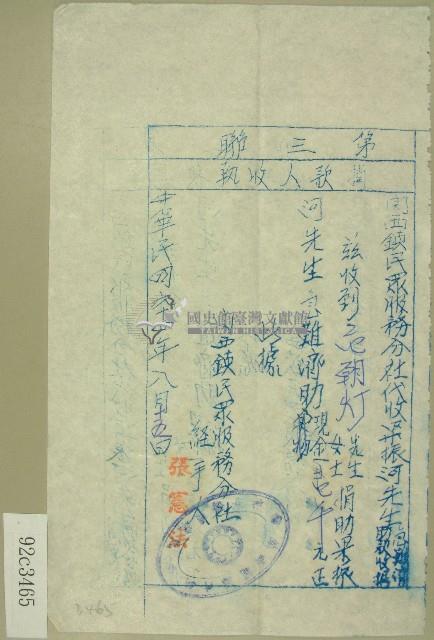 第三聯
捐款人收執
關西鎮民眾服務分社代收梁振河先生急難濟助款收據
茲收到范朝灯先生女士捐助梁振
河先生急難濟助現金實物 元正
此據
關西鎮民眾服務分社
經手人
張憲法
中華民國六十四年八月十五日
國史館臺灣文獻館
TAIWAN HISTORICA
92c3465
3465